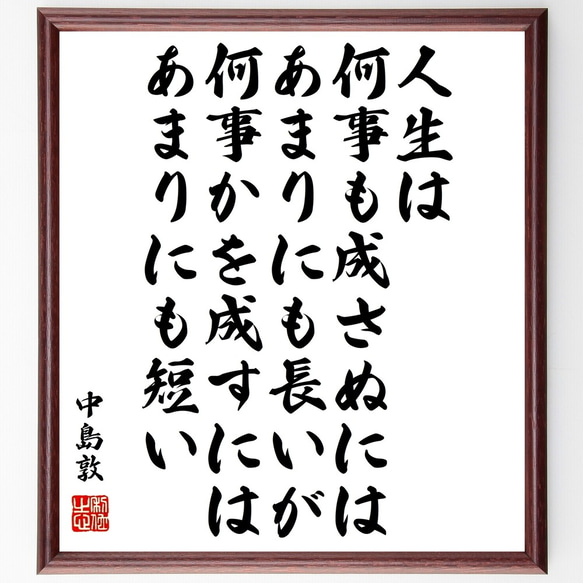 人生は
何事も成さぬには
あまりにも長いが
何事かを成すには
あまりにも短い
中島敦